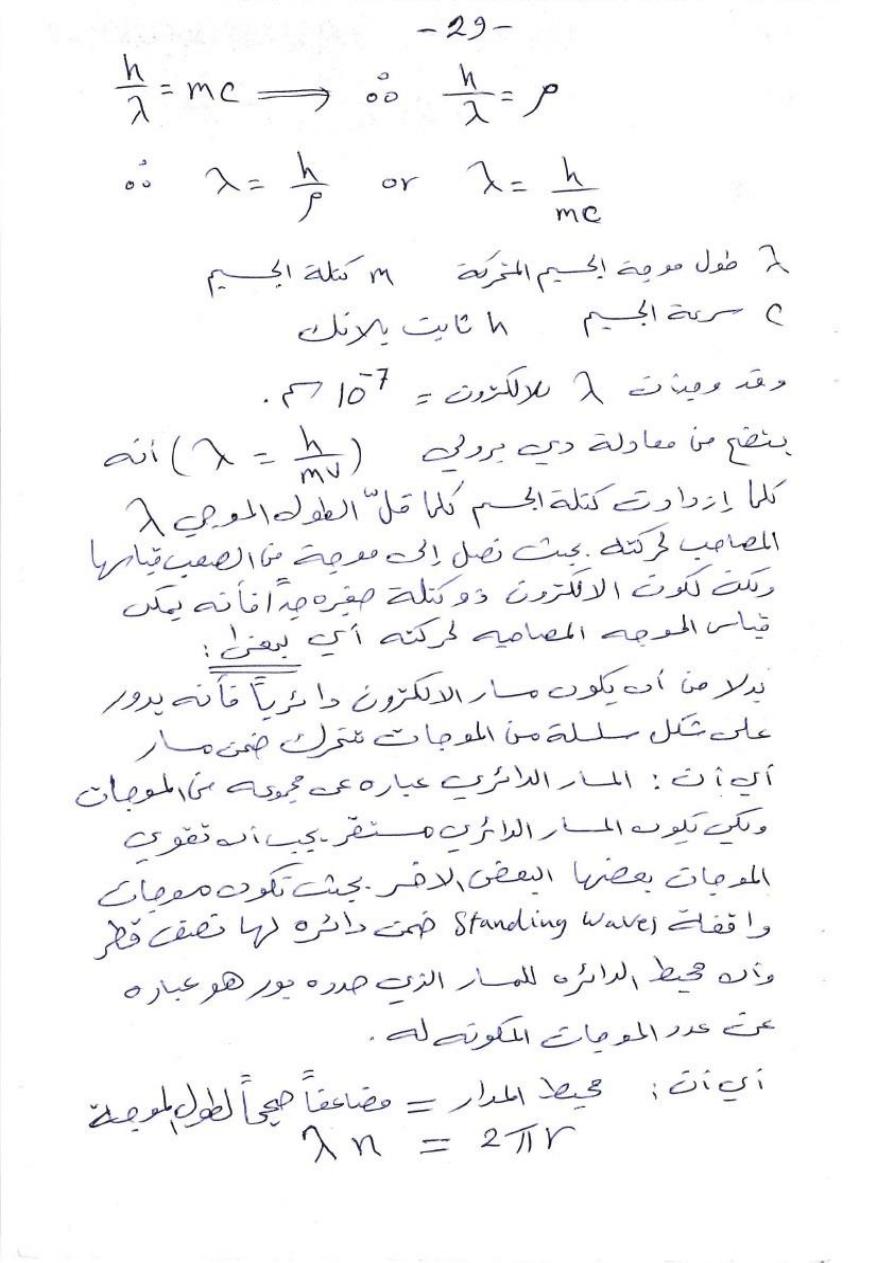 -29-
h/λ = mc ⟹ ∴ h/λ = p
∴ λ = h/p or λ = h/mc
λ طول موجة الجسيم المتحركة m كتلة الجسيم
c سرعة الجسيم h ثابت بلانك
وقد وجدت λ للالكترون = 10⁻⁷ سم .
يتضح من معادلة دي برولي (λ = h/mv) أنه
كلما إزدادت كتلة الجسم كلما قلّ الطول الموجي λ
المصاحب لحركته . بحيث نصل إلى موجة من الصعب قياسها
ولكن لكون الالكترون ذو كتلة صغيره جداً فأنه يمكن
قياس الموجه المصاحبه لحركته أي بمعنى :
بدلا من أن يكون مسار الالكترون دائرياً فأنه يدور
على شكل سلسلة من الموجات تتحرك ضمن مسار
أي أن : المسار الدائري عباره عن مجموعه من الموجات
ولكي يكون المسار الدائري مستقر . يجب أن تقوي
الموجات بعضها البعض الاخر . بحيث تكون موجات
واقفة Standing waves ضمن دائره لها نصف قطر
وأن محيط الدائره للمسار الذي حدده بور هو عباره
عن عدد الموجات المكونه له .
أي أن : محيط المدار = مضاعفاً صحيحاً لطول الموجة
λ n = 2πr